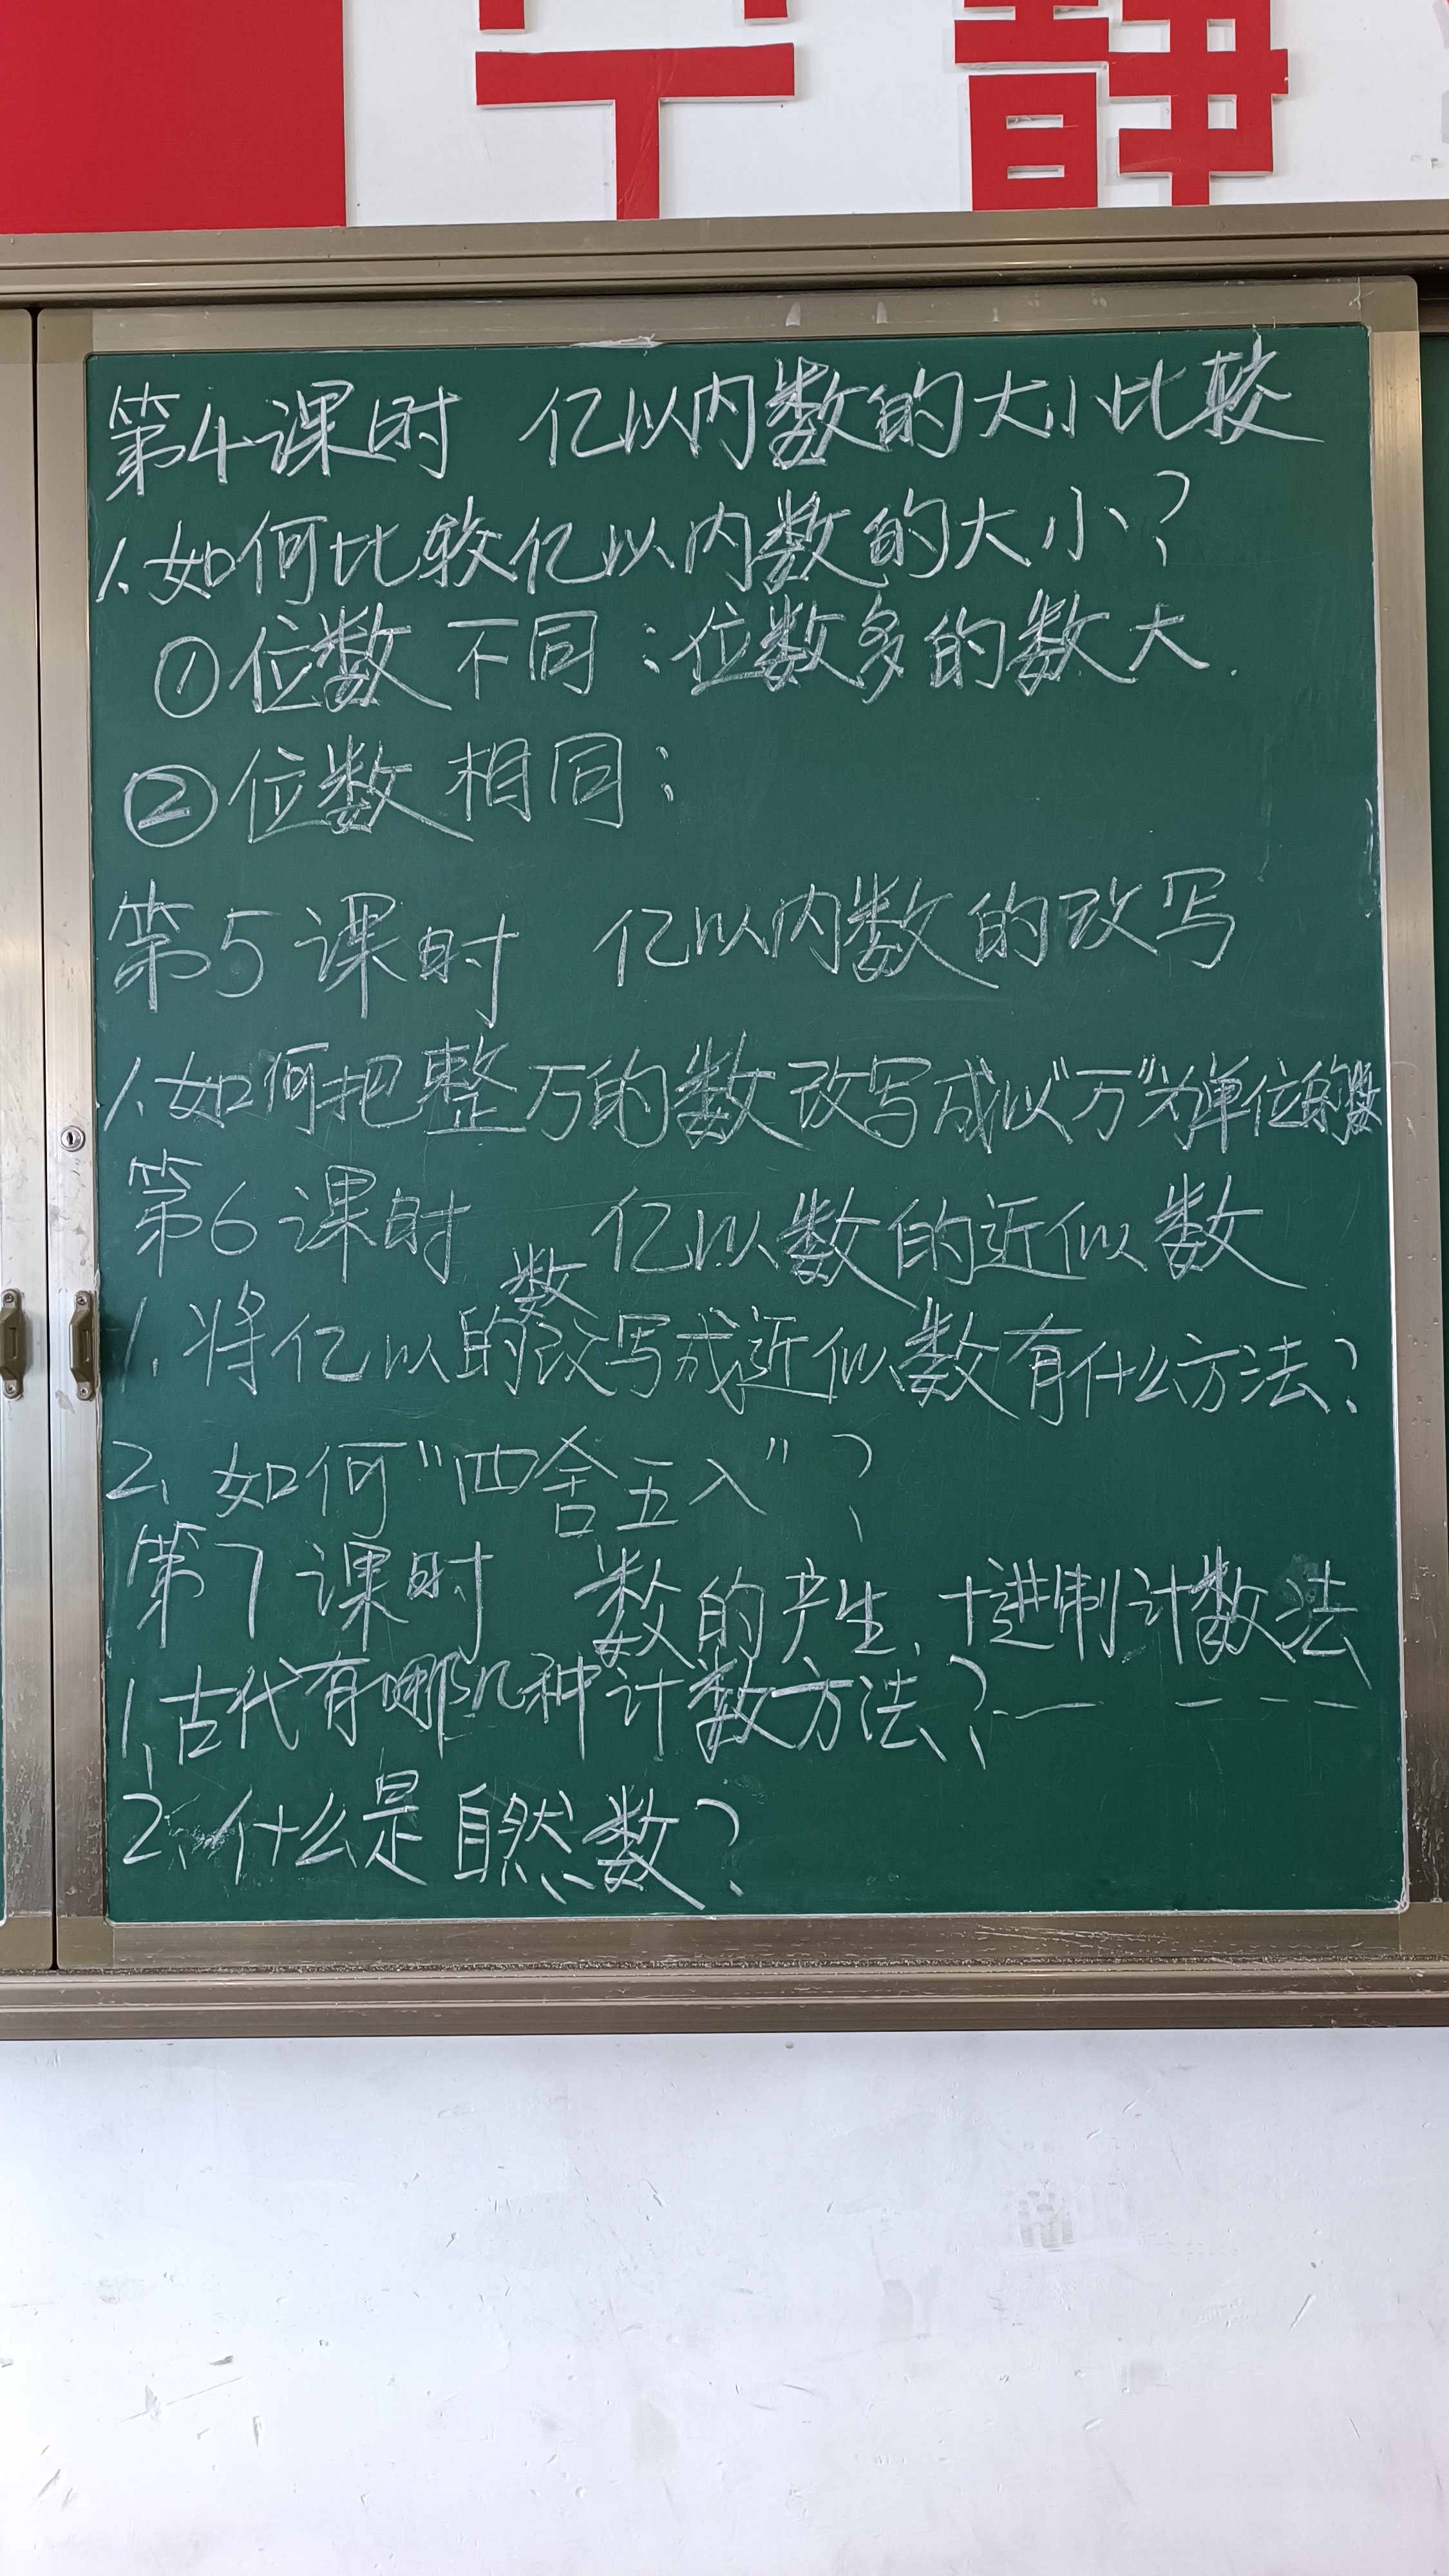 宁 静
第4课时 亿以内数的大小比较
1.如何比较亿以内数的大小?
①位数不同:位数多的数大.
②位数相同:
第5课时 亿以内数的改写
1.如何把整万的数改写成以"万"为单位的数
第6课时 亿以数的近似数
1.将亿以的数改写成近似数有什么方法?
2.如何"四舍五入"?
第7课时 数的产生.十进制计数法
1.古代有哪几种计数方法?
2.什么是自然数?